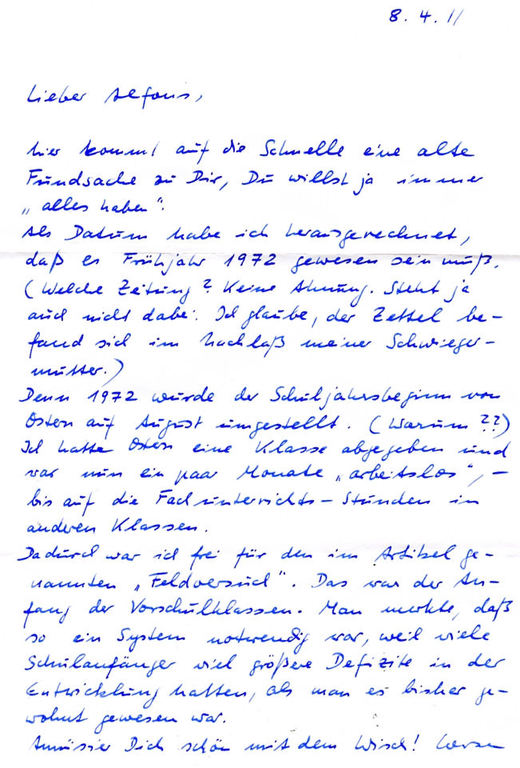 8. 4. 11
Lieber Alfons,
hier kommt auf die Schnelle eine alte
Fundsache zu Dir, Du willst ja immer
„alles haben".
Als Datum habe ich herausgerechnet,
daß es Frühjahr 1972 gewesen sein muß.
(Welche Zeitung? Keine Ahnung. Steht ja
auch nicht dabei. Ich glaube, der Zettel be-
fand sich im Nachlaß meiner Schwieger-
mutter.)
Denn 1972 wurde der Schuljahrsbeginn von
Ostern auf August umgestellt. (Warum??)
Ich hatte Ostern eine Klasse abgegeben und
war nun ein paar Monate „arbeitslos", –
bis auf die Fachunterrichts-Stunden in
anderen Klassen.
Dadurch war ich frei für den im Artikel ge-
nannten „Feldversuch". Das war der An-
fang der Vorschulklassen. Man merkte, daß
so ein System notwendig war, weil viele
Schulanfänger viel größere Defizite in der
Entwicklung hatten, als man es bisher ge-
wohnt gewesen war.
Amüsier Dich schön mit dem Wisch!